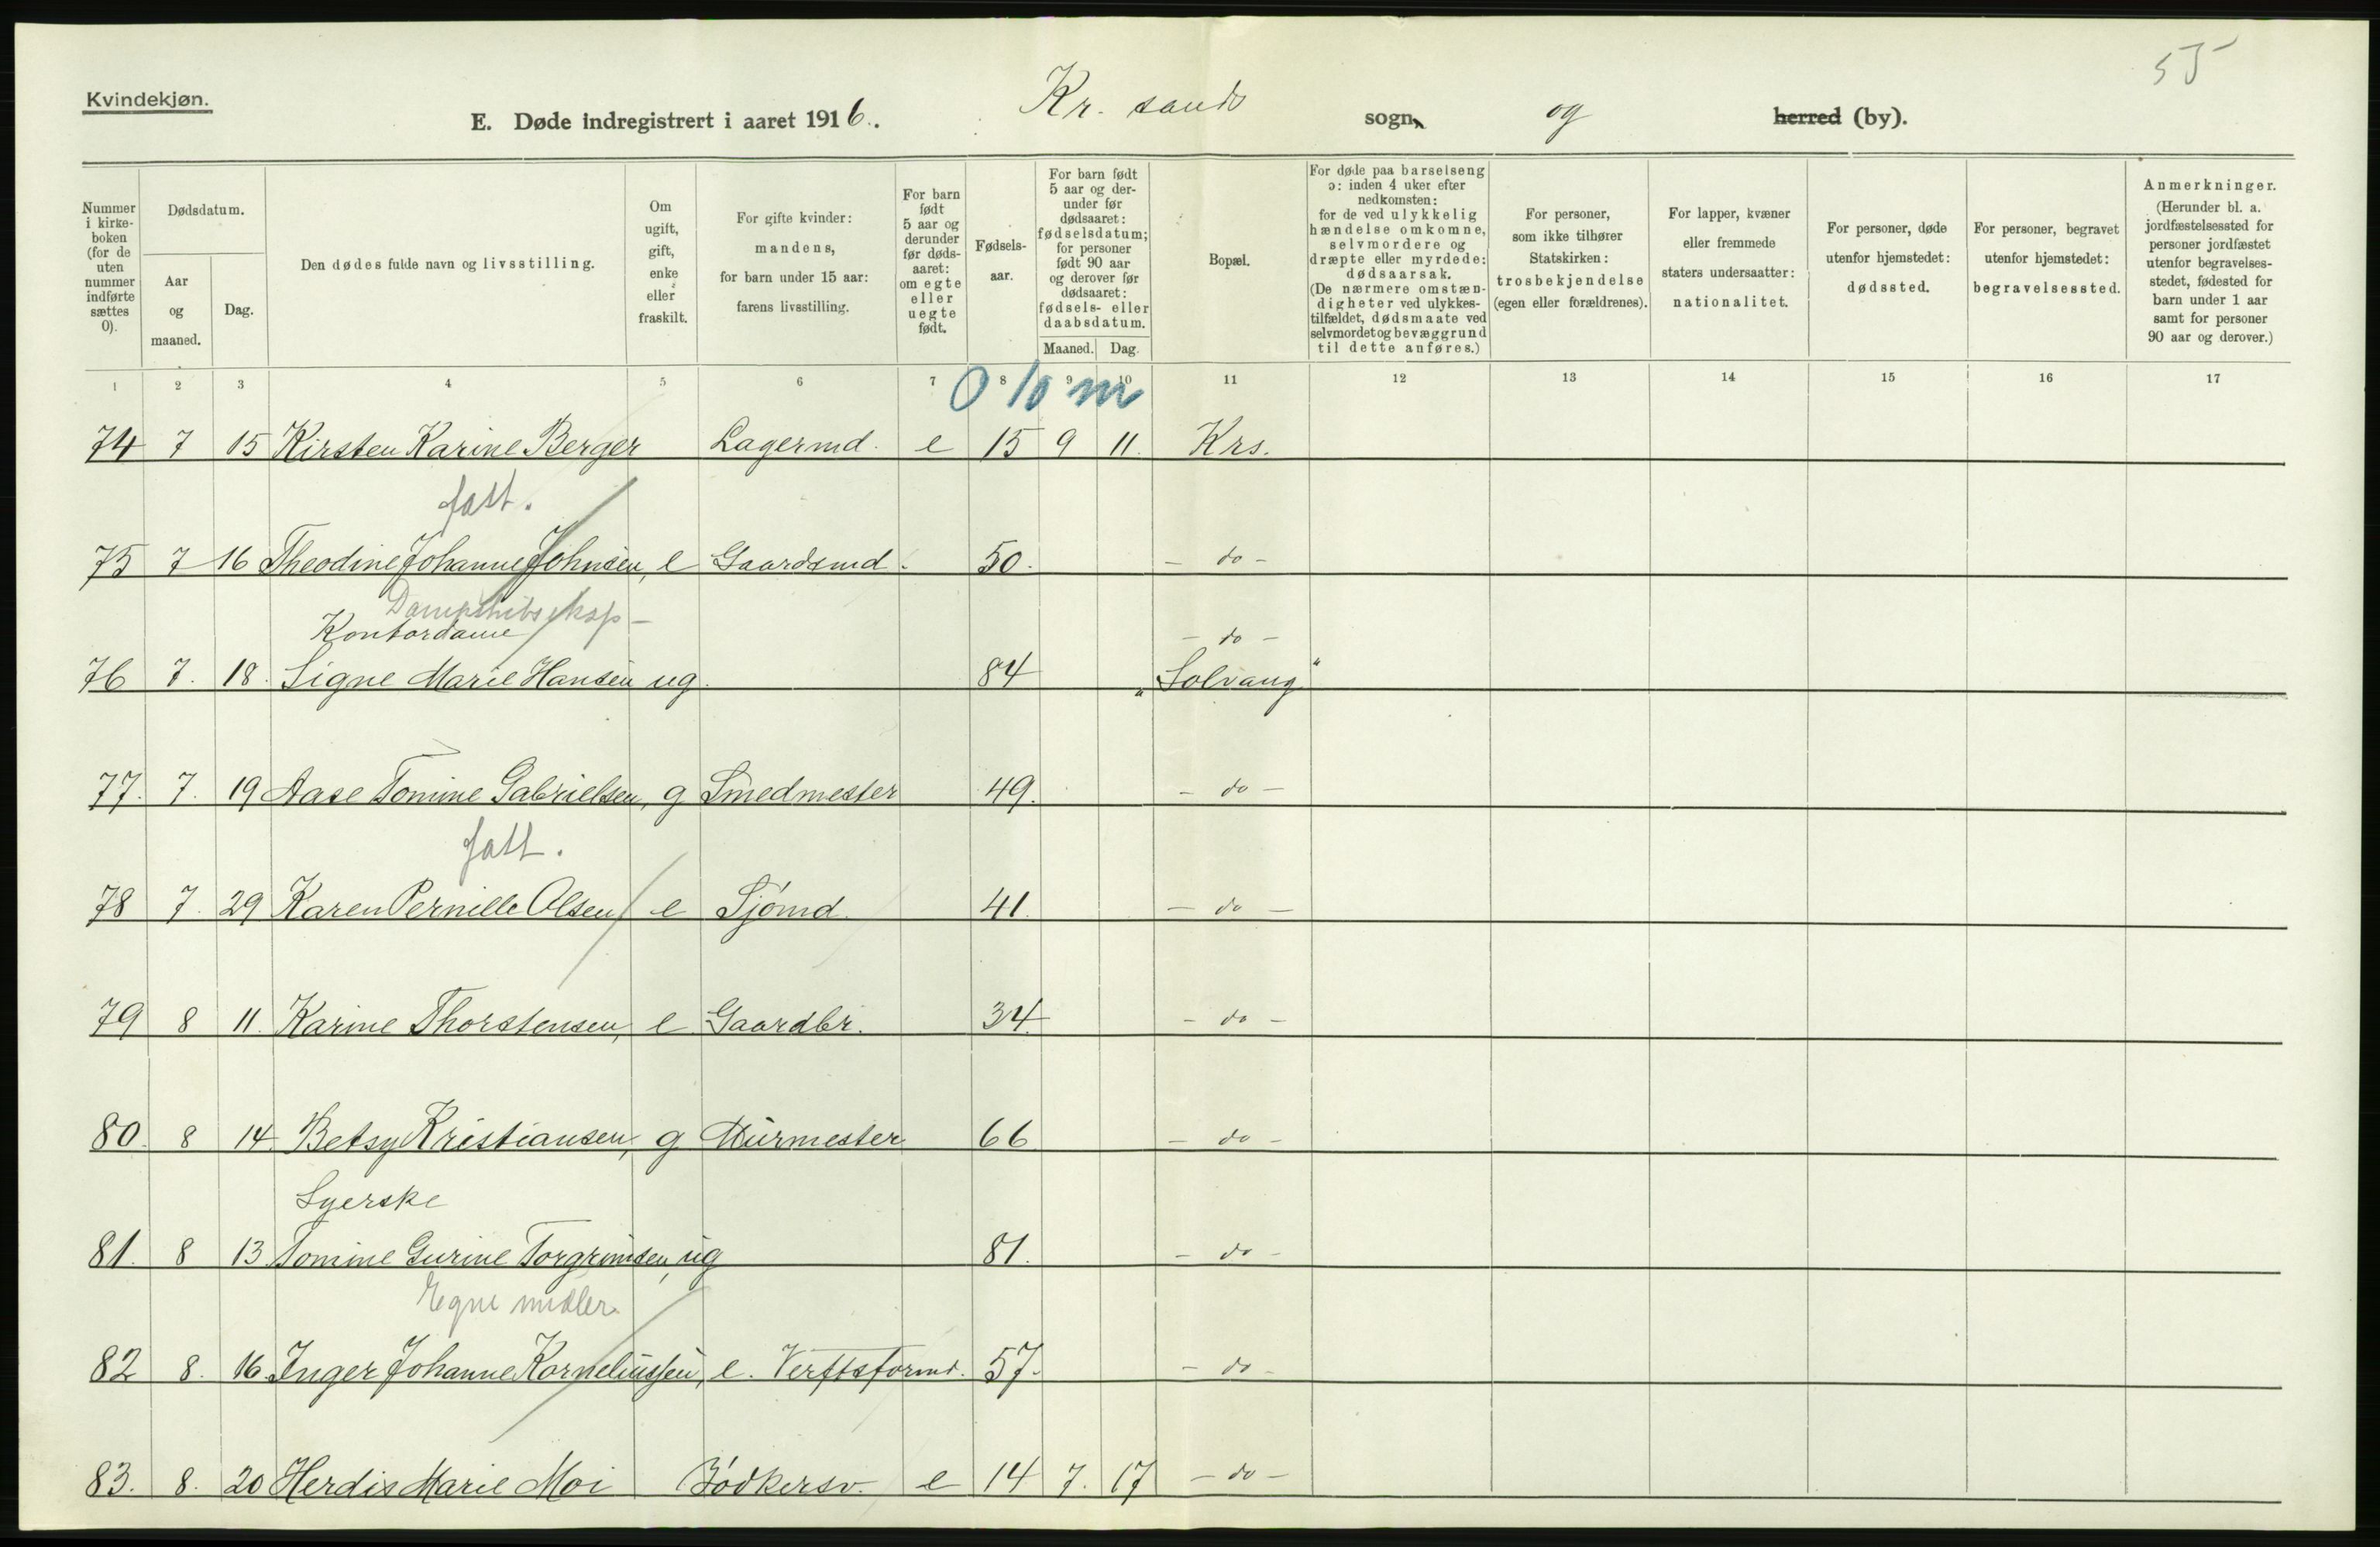 55
Kvindekjøn.
E. Døde indregistrert i aaret 1916. Kr. sands sogn og herred (by).
Nummer i kirke-boken (for de uten nummer indførte sættes 0).
Dødsdatum.
Aar og maaned.
Dag.
Den dødes fulde navn og livsstilling.
Om ugift, gift, enke eller fraskilt.
For gifte kvinder: mandens, for barn under 15 aar: farens livsstilling.
For barn født 5 aar og derunder før døds-aaret: om egte eller uegte født.
Fødsels-aar.
For barn født 5 aar og der-under før dødsaaret: fødselsdatum; for personer født 90 aar og derover før dødsaaret: fødsels- eller daabsdatum.
Maaned. Dag.
Bopæl.
For døde paa barselseng ɔ: inden 4 uker efter nedkomsten: for de ved ulykkelig hændelse omkomne, selvmordere og dræpte eller myrdede: dødsaarsak. (De nærmere omstæn-digheter ved ulykkes-tilfældet, dødsmaate ved selvmordet og bevæggrund til dette anføres.)
For personer, som ikke tilhører Statskirken: trosbekjendelse (egen eller forældrenes).
For lapper, kvæner eller fremmede staters undersaatter: nationalitet.
For personer, døde utenfor hjemstedet: dødssted.
For personer, begravet utenfor hjemstedet: begravelsessted.
Anmerkninger. (Herunder bl. a. jordfæstelsessted for personer jordfæstet utenfor begravelses-stedet, fødested for barn under 1 aar samt for personer 90 aar og derover.)
1 2 3 4 5 6 7 8 9 10 11 12 13 14 15 16 17
0 10 m
74 7 15 Kirsten Karine Berger Lagermd. e 15 9 11. Krs.
fatt.
75 7 16 Theodine Johanne Johnsen, e Gaardsmd. 50. - do -
Kontordame - do -
76 7. 18. Signe Marie Hansen ug. 84 "Solvang"
77. 7. 19 Aase Tomine Gabrielsen, g Smedmester 49. - do -
fatt.
78 7. 29 Karen Pernille Olsen e Sjømd. 41. - do -
79 8 11. Karine Thorstensen, e Gaardbr. 34. - do -
80. 8 14. Betsy Kristiansen, g Murmester 66 - do -
Syerske
81. 8 13. Tomine Gurine Torgrimsen, ug 81. - do -
Egne midler.
82 8. 16. Inger Johanne Korneliussen, e. Verftsformd. 57. - do -
83. 8. 20 Herdis Marie Moi Bødkersv. e 14 7. 17 - do -